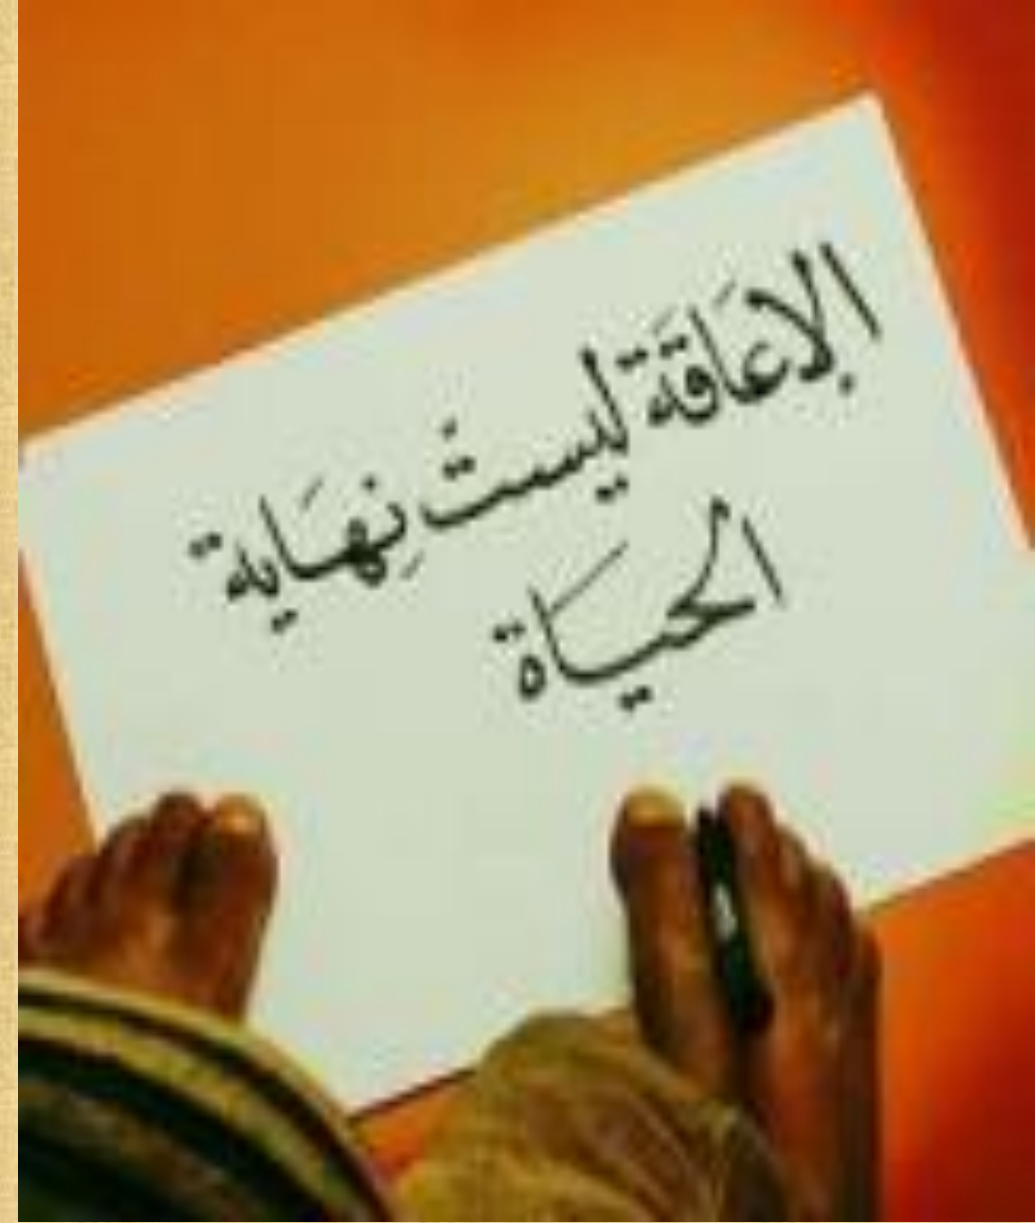 الاعَاقَة ليستْ نِهَاية
الحيَاة